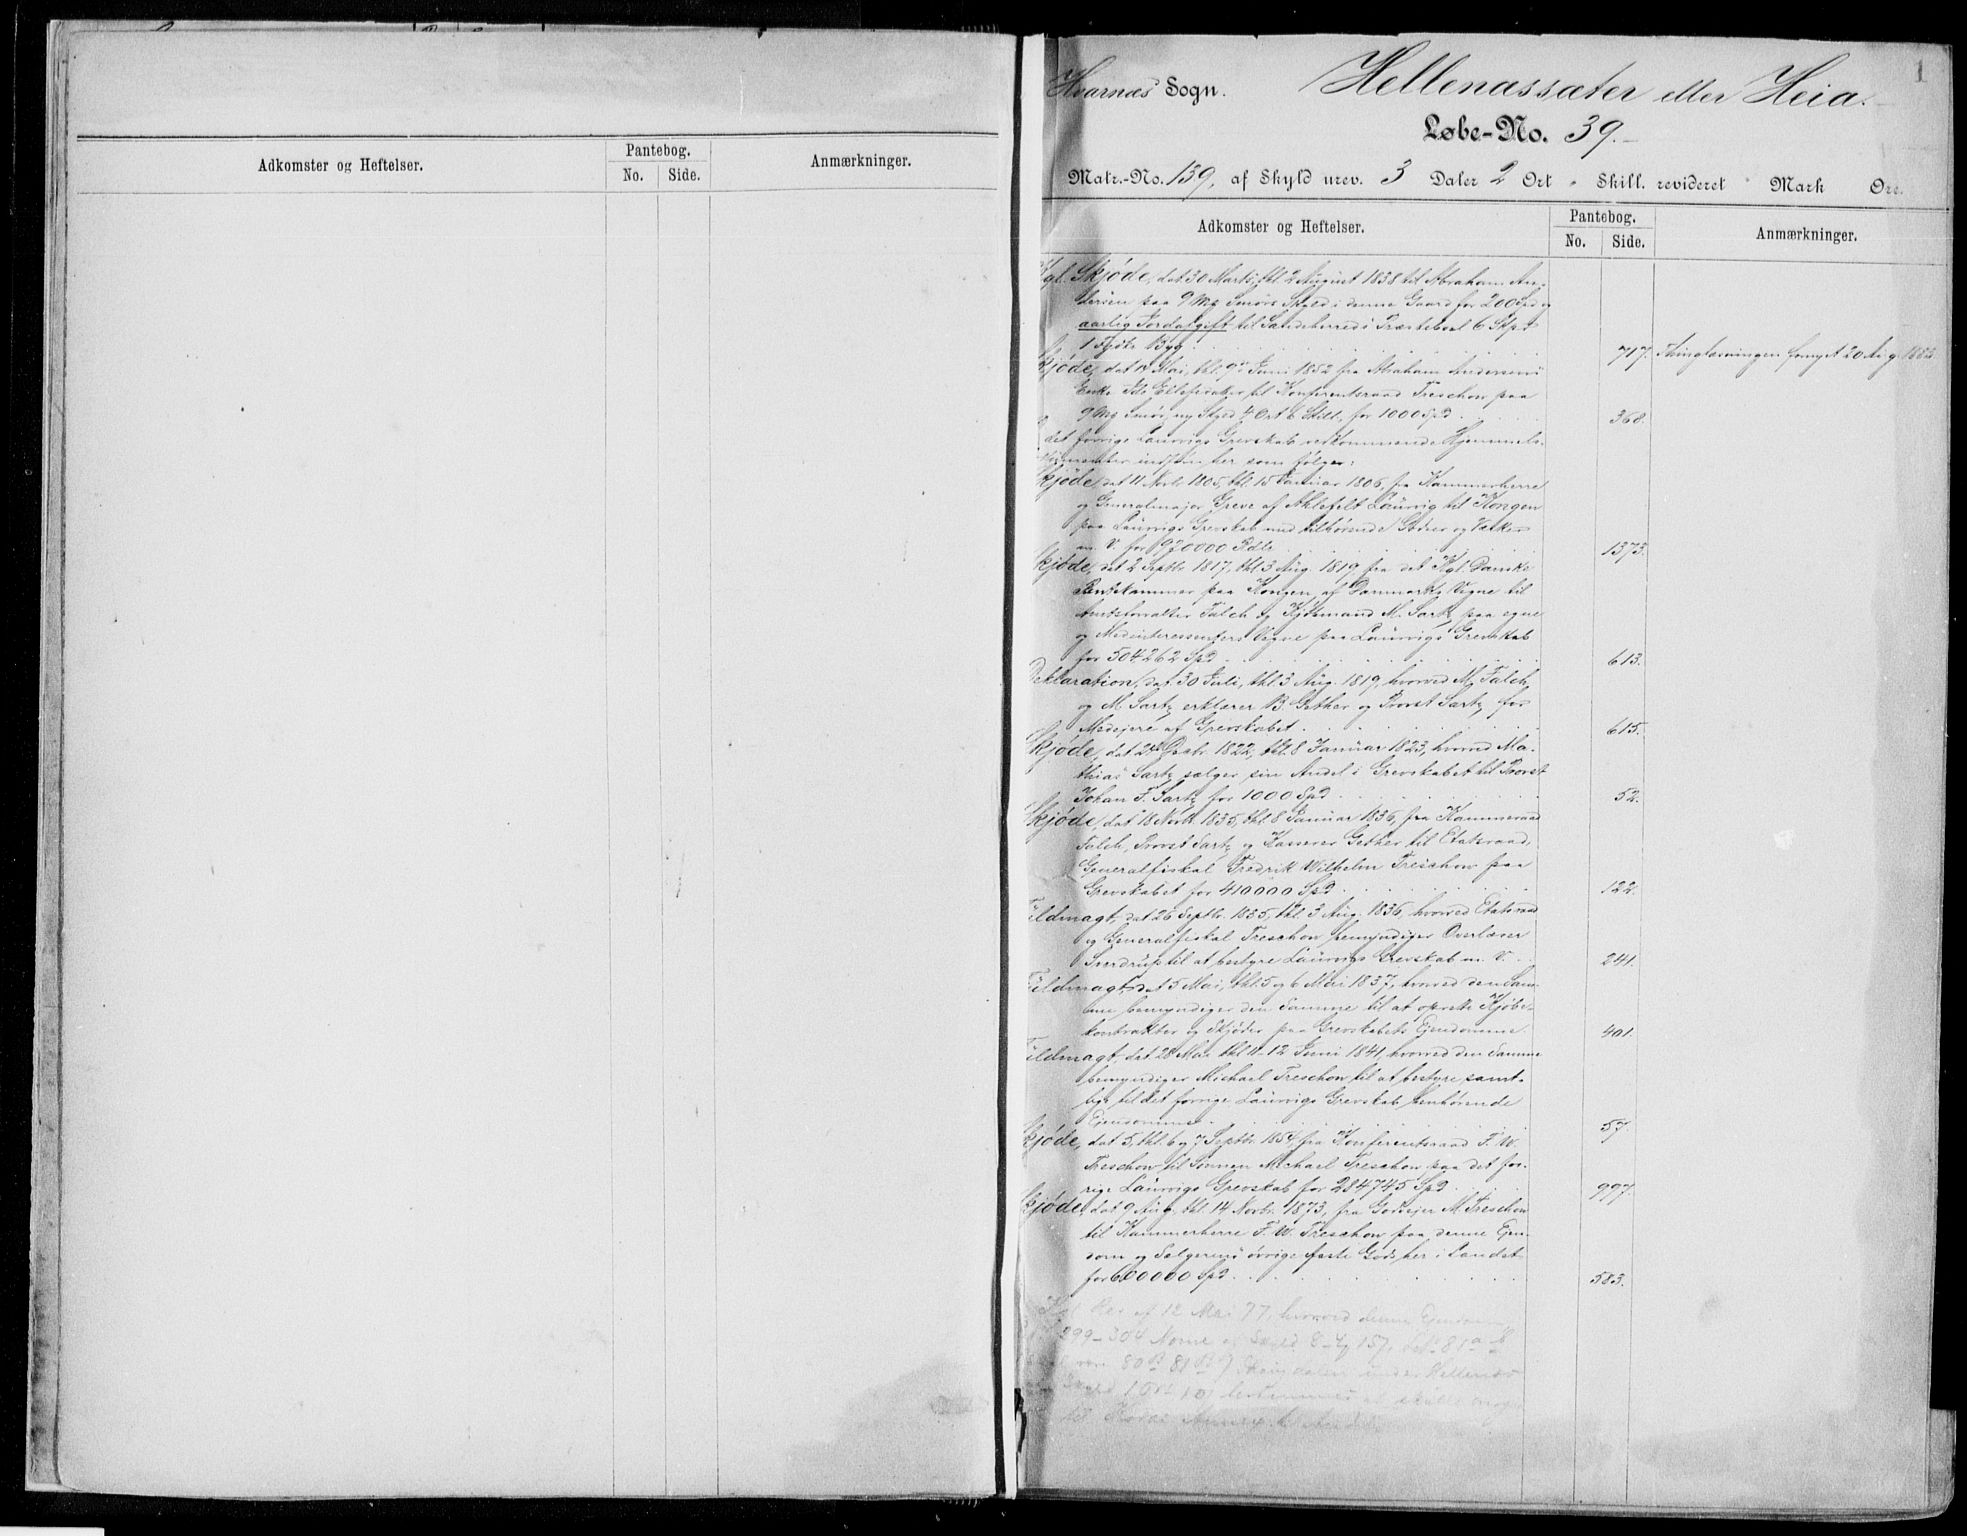 Adkomster og Heftelser.
Pantebog.
No. Side.
Anmærkninger.
1
Hvarnæs Sogn. Hellenassæter eller Heia.
Løbe-No. 39.
Matr.-No. 159, af Skyld urev. 3 Daler 2 Ort " Skill. revideret " Mark Øre.
Adkomster og Heftelser.
Pantebog.
No. Side.
Anmærkninger.
Kgl. Skjøde, dat 30 Marts, thl. 2 August 1838 til Abraham An-
dersen paa 9 Mg Smørs Skyld i denne Gaard for 200 Spd og
aarlig Jordafgift til Sandeherreds Præstebord 6 Skpd
1 Fjdk Byg. 717. Thinglæsningen fornyet 20 Aug. 1883
Skjøde, dat Mai, thl. 9 Juni 1852 fra Abraham Andersens
Enke Ellefsdatter til Konferentsraad Treschow paa
9 Mg Smør, ny Skyld 4 Ort 6 Skill, for 1000 Spd 368.
det forrige Laurvigs Grevskab vedkommende Hjemmels-
dokumenter indføres her som følger:
Skjøde, dat 11 Novbr 1805, thl. 15 Januar 1806, fra Kammerherre
og Generalmajor Greve af Ahlefelt Laurvig til Kongen
paa Laurvigs Grevskab med tilhørende Godser og Værker
m. V. for 970000 Rdlr 1373.
Skjøde, dat 2 Septbr 1817, thl. 3 Aug. 1819 fra det Kgl. Danske
Rentekammer paa Kongen af Danmarks Vegne til
Amtsforvalter Falch og Kjøbmand M. Sartz paa egne
og Medinteressenters Vegne paa Laurvigs Grevskab
for 504262 Spd 613.
Deklaration, dat 30 Juli, thl. 3 Aug. 1819, hvorved M. Falch
og M. Sartz erklærer B. Gether og Provst Sartz for
Medejere af Grevskabet 615.
Skjøde, dat 24 1822, thl. 8 Januar 1823, hvorved Ma-
thias Sartz sælger sin Andel i Grevskabet til Provst
Johan F. Sartz for 1000 Spd 52.
Skjøde, dat 18 Novbr 1835, thl. 8 Januar 1836, fra Kammerraad
Falch, Provst Sartz og Kasserer Gether til Etatsraad,
Generalfiskal Fredrik Wilhelm Treschow paa
Grevskabet for 410000 Spd 122.
Fuldmagt, dat 26 Septbr. 1835, thl. 3 Aug. 1836, hvorved Etatsraad
og Generalfiskal Treschow bemyndiger Overlærer
Sverdrup til at bestyre Laurvigs Grevskab m. V. 241.
Fuldmagt, dat 5 Mai, thl. 5 og 6 Mai 1837, hvorved den Sam-
me bemyndiger den Samme til at oprette Kjøbe-
kontrakter og Skjøder paa Grevskabets Ejendomme. 401.
Fuldmagt, dat 28 Mai thl 11-12 Juni 1841, hvorved den Samme
bemyndiger Michael Treschow til at bestyre samt-
lige til det forrige Laurvigs Grevskab henhørende
Ejendomme 57.
Skjøde, dat 5, thl. 6 og 7 Septbr. 1854, fra Konferentsraad F. W.
Treschow til Sønnen Michael Treschow paa det for-
rige Laurvigs Grevskab for 284745 Spd 997.
Skjøde, dat 9 Aug, thl. 14 Novbr. 1873, fra Godsejer M. Treschow
til Kammerherre F. W. Treschow paa denne Ejen-
dom og Sælgerens øvrige faste Gods her i Landet
for 600000 Spd 583.
Kgl Res af 12 Mai 77, hvorved denne Ejendom
299-304 Skyld 157, 81a
80 81 under Hellenæs
Skyld bestemmes at skille
til Annex